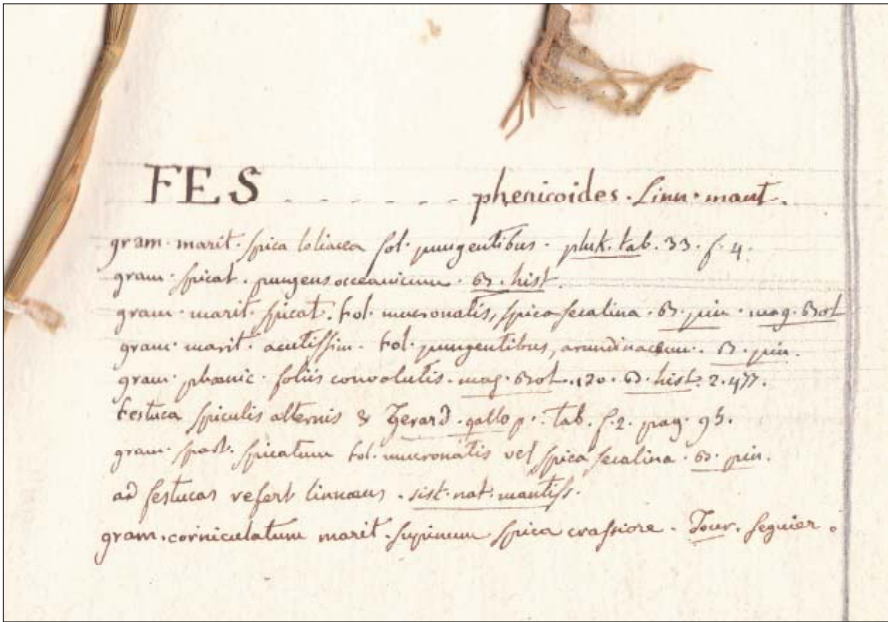 FES - - - - - - phenicoides. Linn. mant.
gram. marit. spica loliacea fol. pungentibus. pluk. tab. 33. f. 4.
gram. spicat. pungens occeanicum. hist.
gram. marit. spicat. fol. mucronatis, spica secalina. pin. mag. bot
gram. marit. acutissim. fol. pungentibus, arundinaceum. pin.
gram. phœnic. foliis convolutis. mag. bot. 130. hist. 2. 477.
festuca spiculis alternis & Gerard. gallo p. tab. f. 2. pag. 95.
gram. spart. spicatum fol. mucronatis vel spica secalina. pin.
ad festucas refert linnæus. sist. nat. mantiss.
gram. corniculatum marit. supinum spica crassiore. Tour. seguier